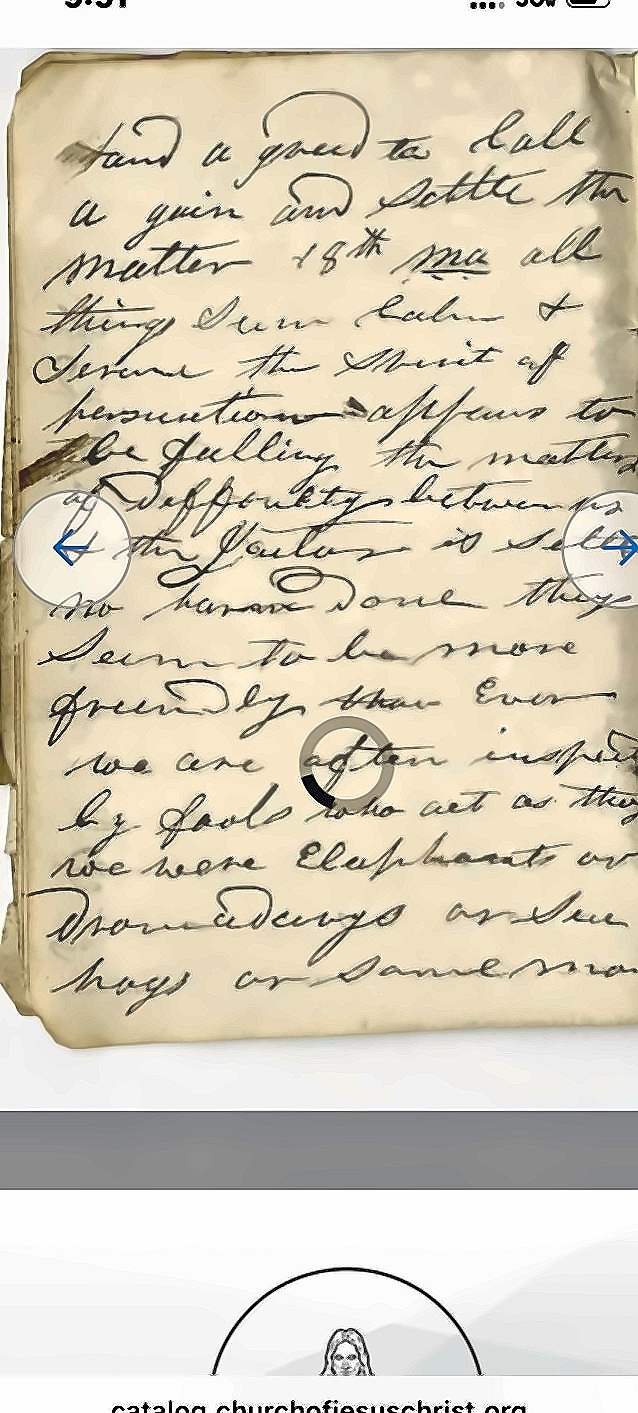 and agreed to Call
a gain and Settle the
matter 18th ma all
things Seem Calm &
Serene the Spirit of
persuecution appears to
be falling the matter
of Deffouelty between us
& the Jailor is Settl
no harm Done they
Seem to be more
freindly than Ever
we are often inspect
by fools who act as they
we were Elephants or
Dromadarys or Sea
hogs or Some mon
catalog.churchofjesuschrist.org